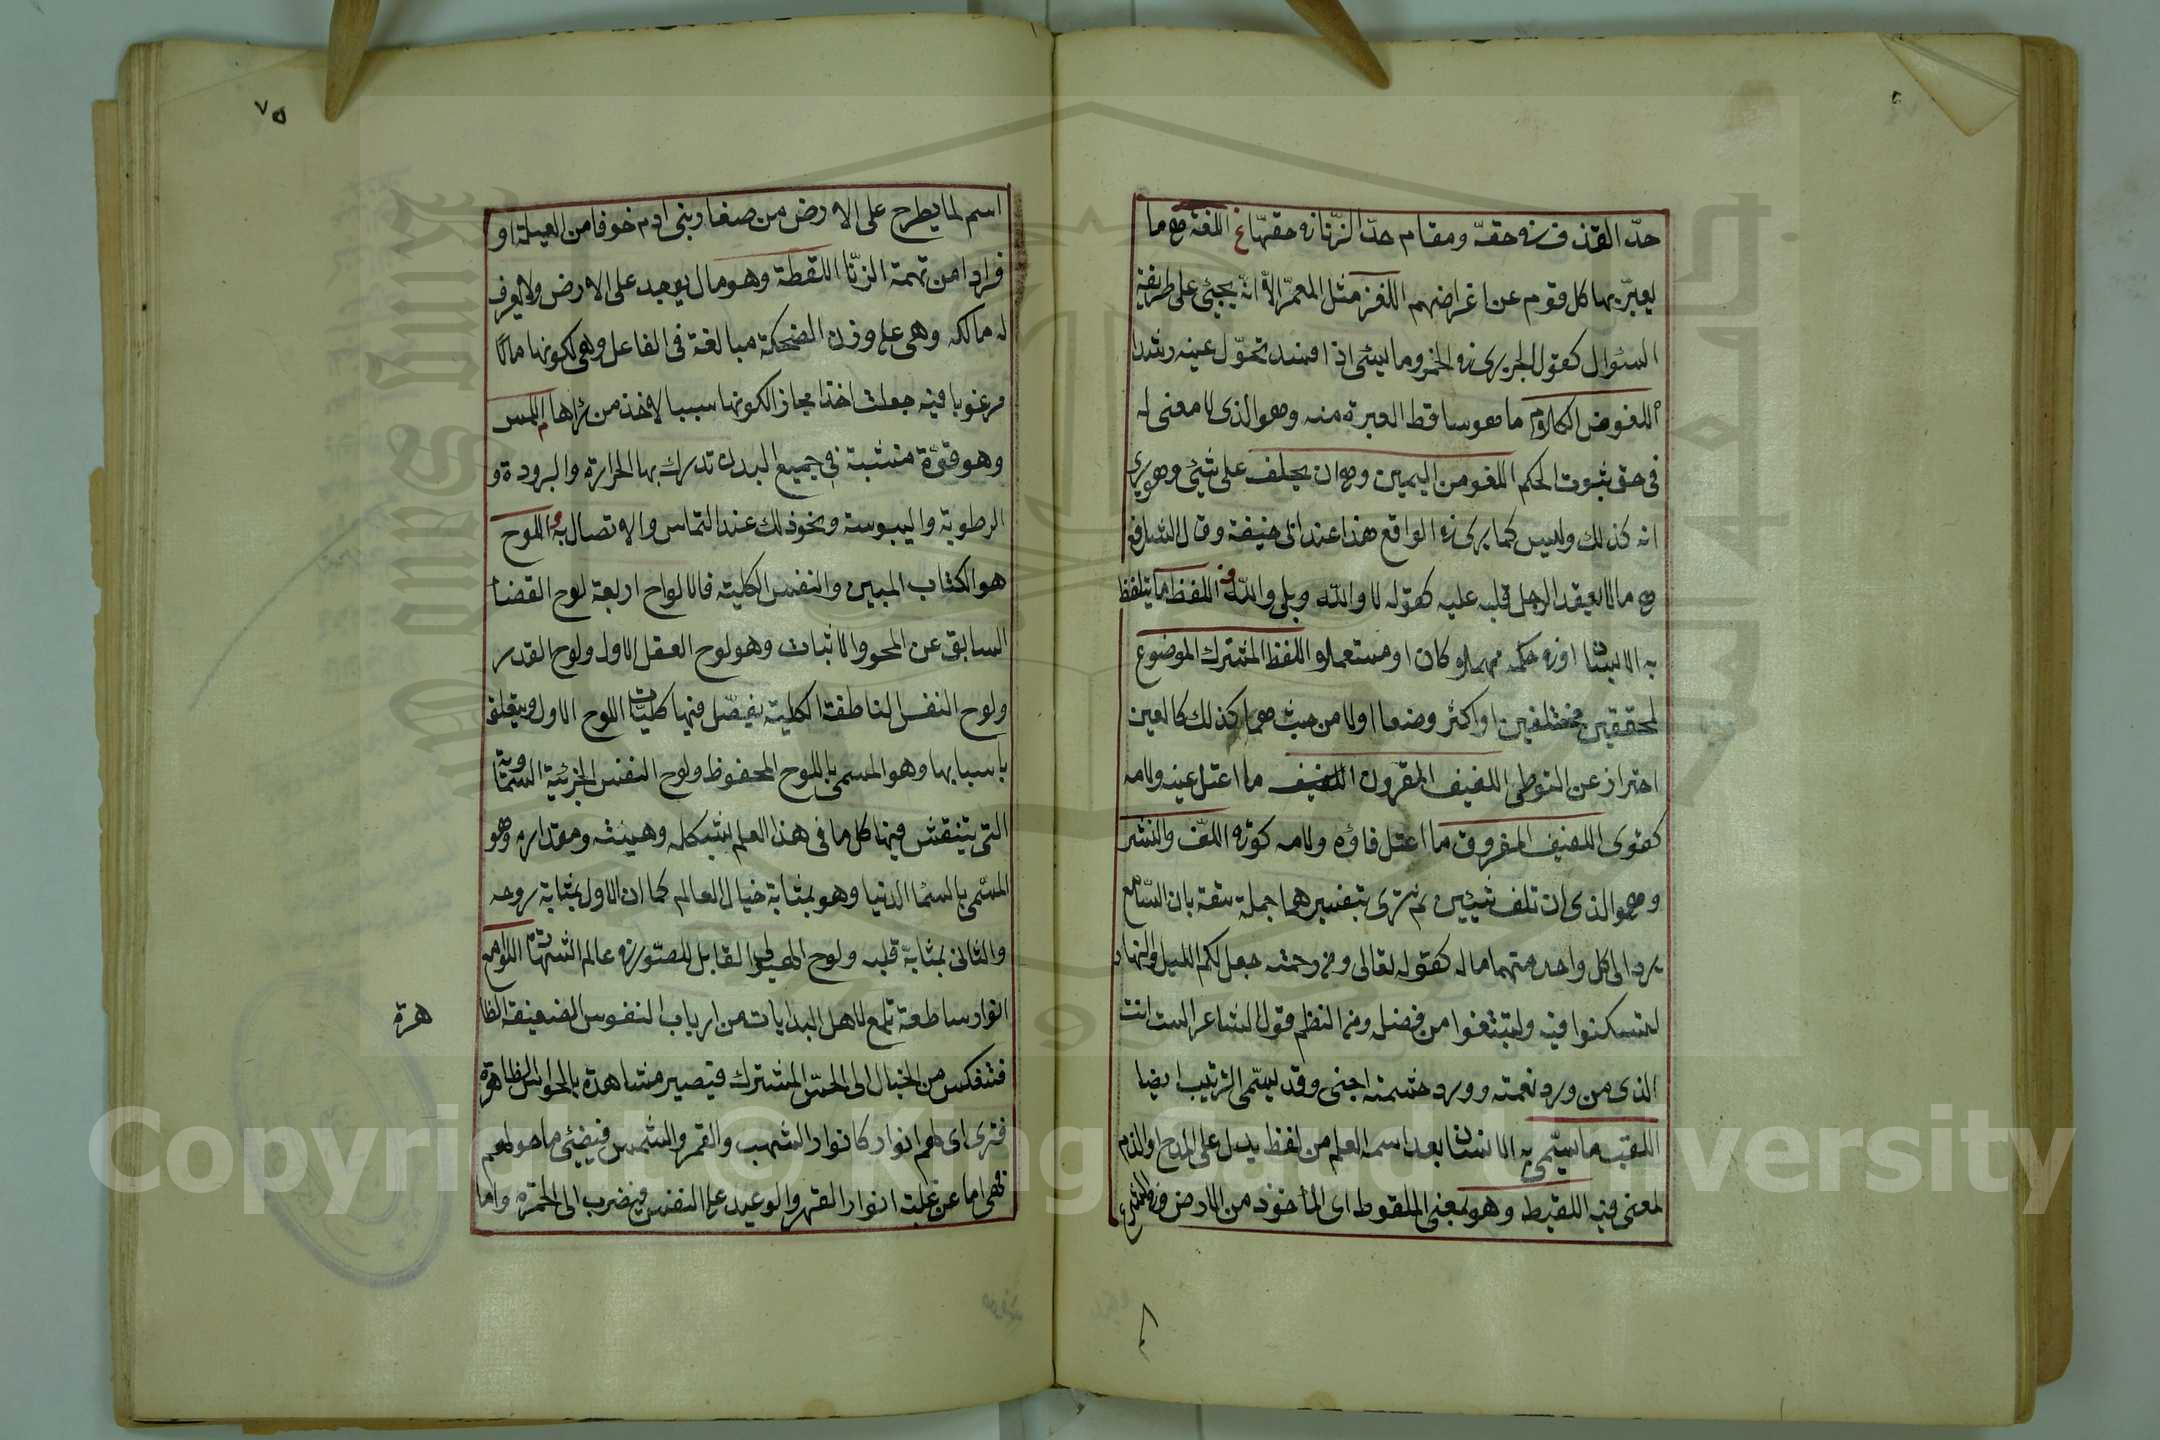 حدّ القذف في حقه ومقام حدّ الزنا في حقهاغ اللغة هي ما
يعبّر بها كل قوم عن اغراضهم اللغز مثل المعمّا الا انه يجيئ على طريقة
السئوال كقول الحريري في الخمر وما شيئ اذا فسد تحوّل غيه رشدا
اللغو من الكلام ما هو ساقط العبرة منه وهو الذي لا معنى له
في حق ثبوت الحكم اللغو من اليمين وهو ان يحلف على شيئ وهو يرى
انه كذلك وليس كما يرى في الواقع هذا عند ابي حنيفة وقال الشافعي
هي ما لا يعقد الرجل قلبه عليه كقوله لا والله وبلى والله اللفظ ما يتلفظ
به الانسان او في حكمه مهملا كان او مستعملا اللفظ المشترك الموضوع
لحقيقتين مختلفين او اكثر وضعا اولا من حيث هما كذلك كالعين
احتراز عن المتوطى اللفيف المقرون اللفيف ما اعتل عينه ولامه
كقوى اللفيف المفروق ما اعتل فاؤه ولامه كوقى اللف والنشر
وهو الذي ان تلف شيئين ثم ترى بتفسيرهما جملة ثقة بان السامع
يرد الى كل واحد منهما ما له كقوله تعالى ومن رحمته جعل لكم الليل والنهار
لتسكنوا فيه ولتبتغوا من فضله ومن النظم قول الشاعر الست انت
الذي من ورد نعمته وورد حشمته اجنى وقد يسمى الترتيب ايضا
اللقب ما يسمّى به الانسان بعد اسمه العلم من لفظ يدل على المدح او الذم
لمعنى فيه اللقيط وهو بمعنى الملقوط اى المأخوذ من الارض وفي الشرع
٧٥
اسم لما يطرح على الارض من صغار بنى ادم خوفا من العيلة او
فرارا من تهمة الزنا اللقطة وهو مال يوجد على الارض ولا يعرف
له مالك وهي على وزن الضحكة مبالغة في الفاعل وهي لكونها مالا
مرغوبا فيه جعلت اخذا مجازا لكونها سببا لاخذ من يراها اللمس
وهو قوّة منبثة في جميع البدن تدرك بها الحرارة والبرودة و
الرطوبة واليبوسة ونحو ذلك عند التماس والاتصال به اللوح
هو الكتاب المبين والنفس الكلية فالالواح اربعة لوح القضا
السابق عن المحو والاثبات وهو لوح العقل الاول ولوح القدر
ولوح النفس لناطقة الكلية يفصّل فيها كليّات اللوح الاول ويتعلق
باسبابها وهو المسمى باللوح المحفوظ ولوح النفس الجزئية السماوية
التي ينتقش فيها كل ما في هذا العالم بشكله وهيئته ومقداره وهو
المسمّى بالسما الدنيا وهو بمثابة خيال العالم كما ان الاول بمثابة روحه
والثاني بمثابة قلبه ولوح الهيولى القابل للصور في عالم الشهادة اللوامع
انوار ساطعة تلمع لاهل البدايات من ارباب النفوس الضعيفة الظا
هرة
فتنعكس من الخيال الى الحس المشترك فيصير مشاهدة بالحواس الظاهرة
فترى اى لهم انوار كانوار الشهب والقمر والشمس فيضيئ ما حولهم
فهي اما عن غلبة انوار القهر والوعيد على النفس فيضرب الى الحمرة واما
Copyright © King Saud University